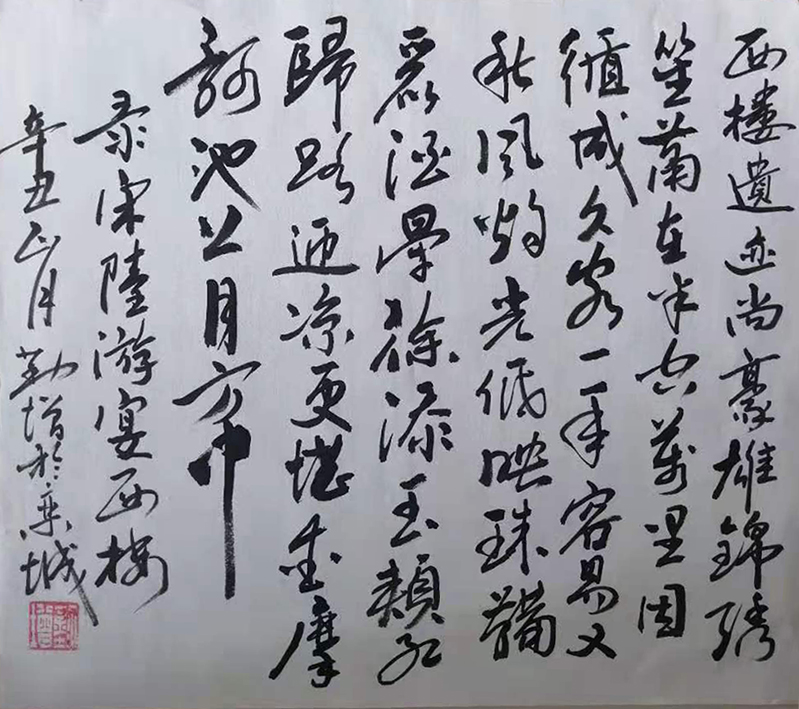 西樓遺迹尚豪雄錦綉
笙蕭在半空萬里因
循城久客一年容易又
秋風燭光低映珠韝
麗酒暈徐添玉頰紅
歸路迎凉更堪愛摩
訶池上月方中
录宋陸游宴西楼
辛丑正月勤增於栾城